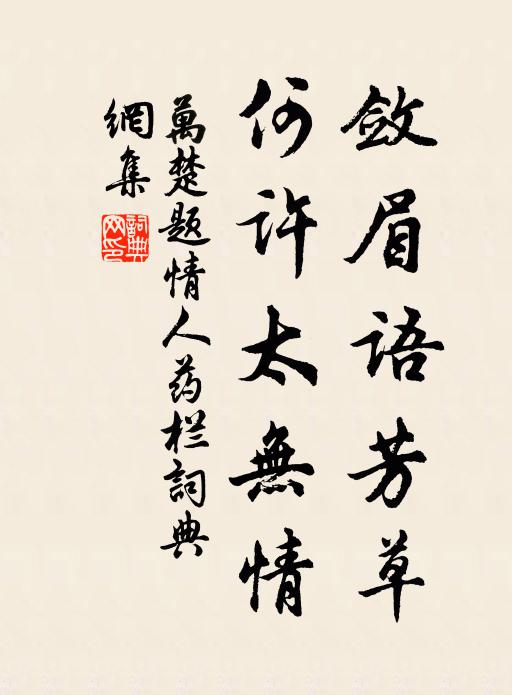 斂眉語芳草
何許太無情
萬楚題情人药栏詞典
網集
詞典
网印